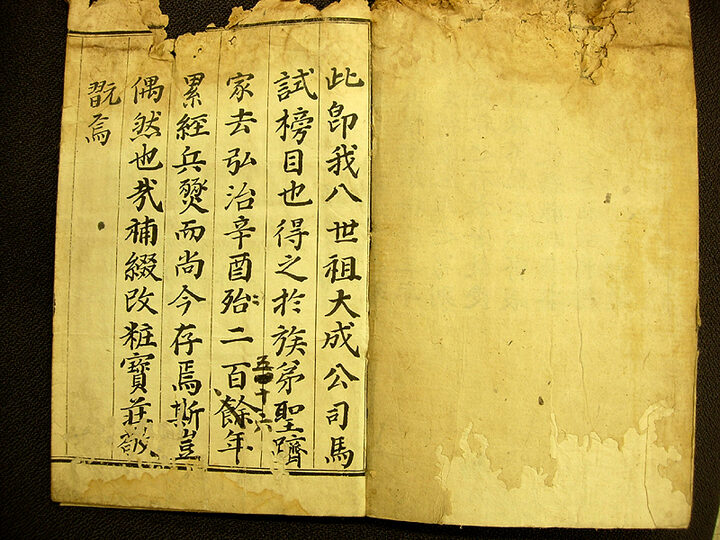 此卽我八世祖大成公司馬
試榜目也得之扵族苐聖躋
家去弘治辛酉殆二百餘年
五十六
累經兵燹而尚今存焉斯豈
偶然也㢤補綴改粧寶莊
翫焉